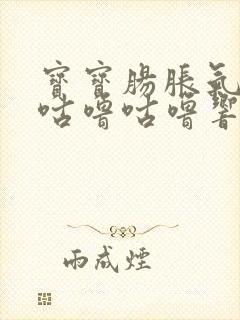 寶寶腸脹氣
咕嚕咕嚕響
雨成煙